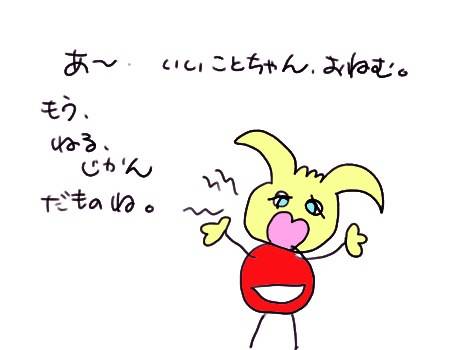 あ〜 いいことちゃん、おねむ。
もう、
ねる、
じかん
だものね。